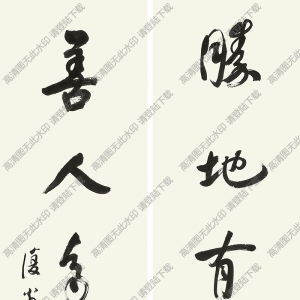 勝地有
善人
復
高清图无此水印 请登陆下载